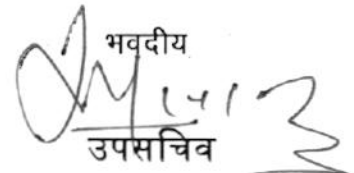 भवदीय
उपसचिव